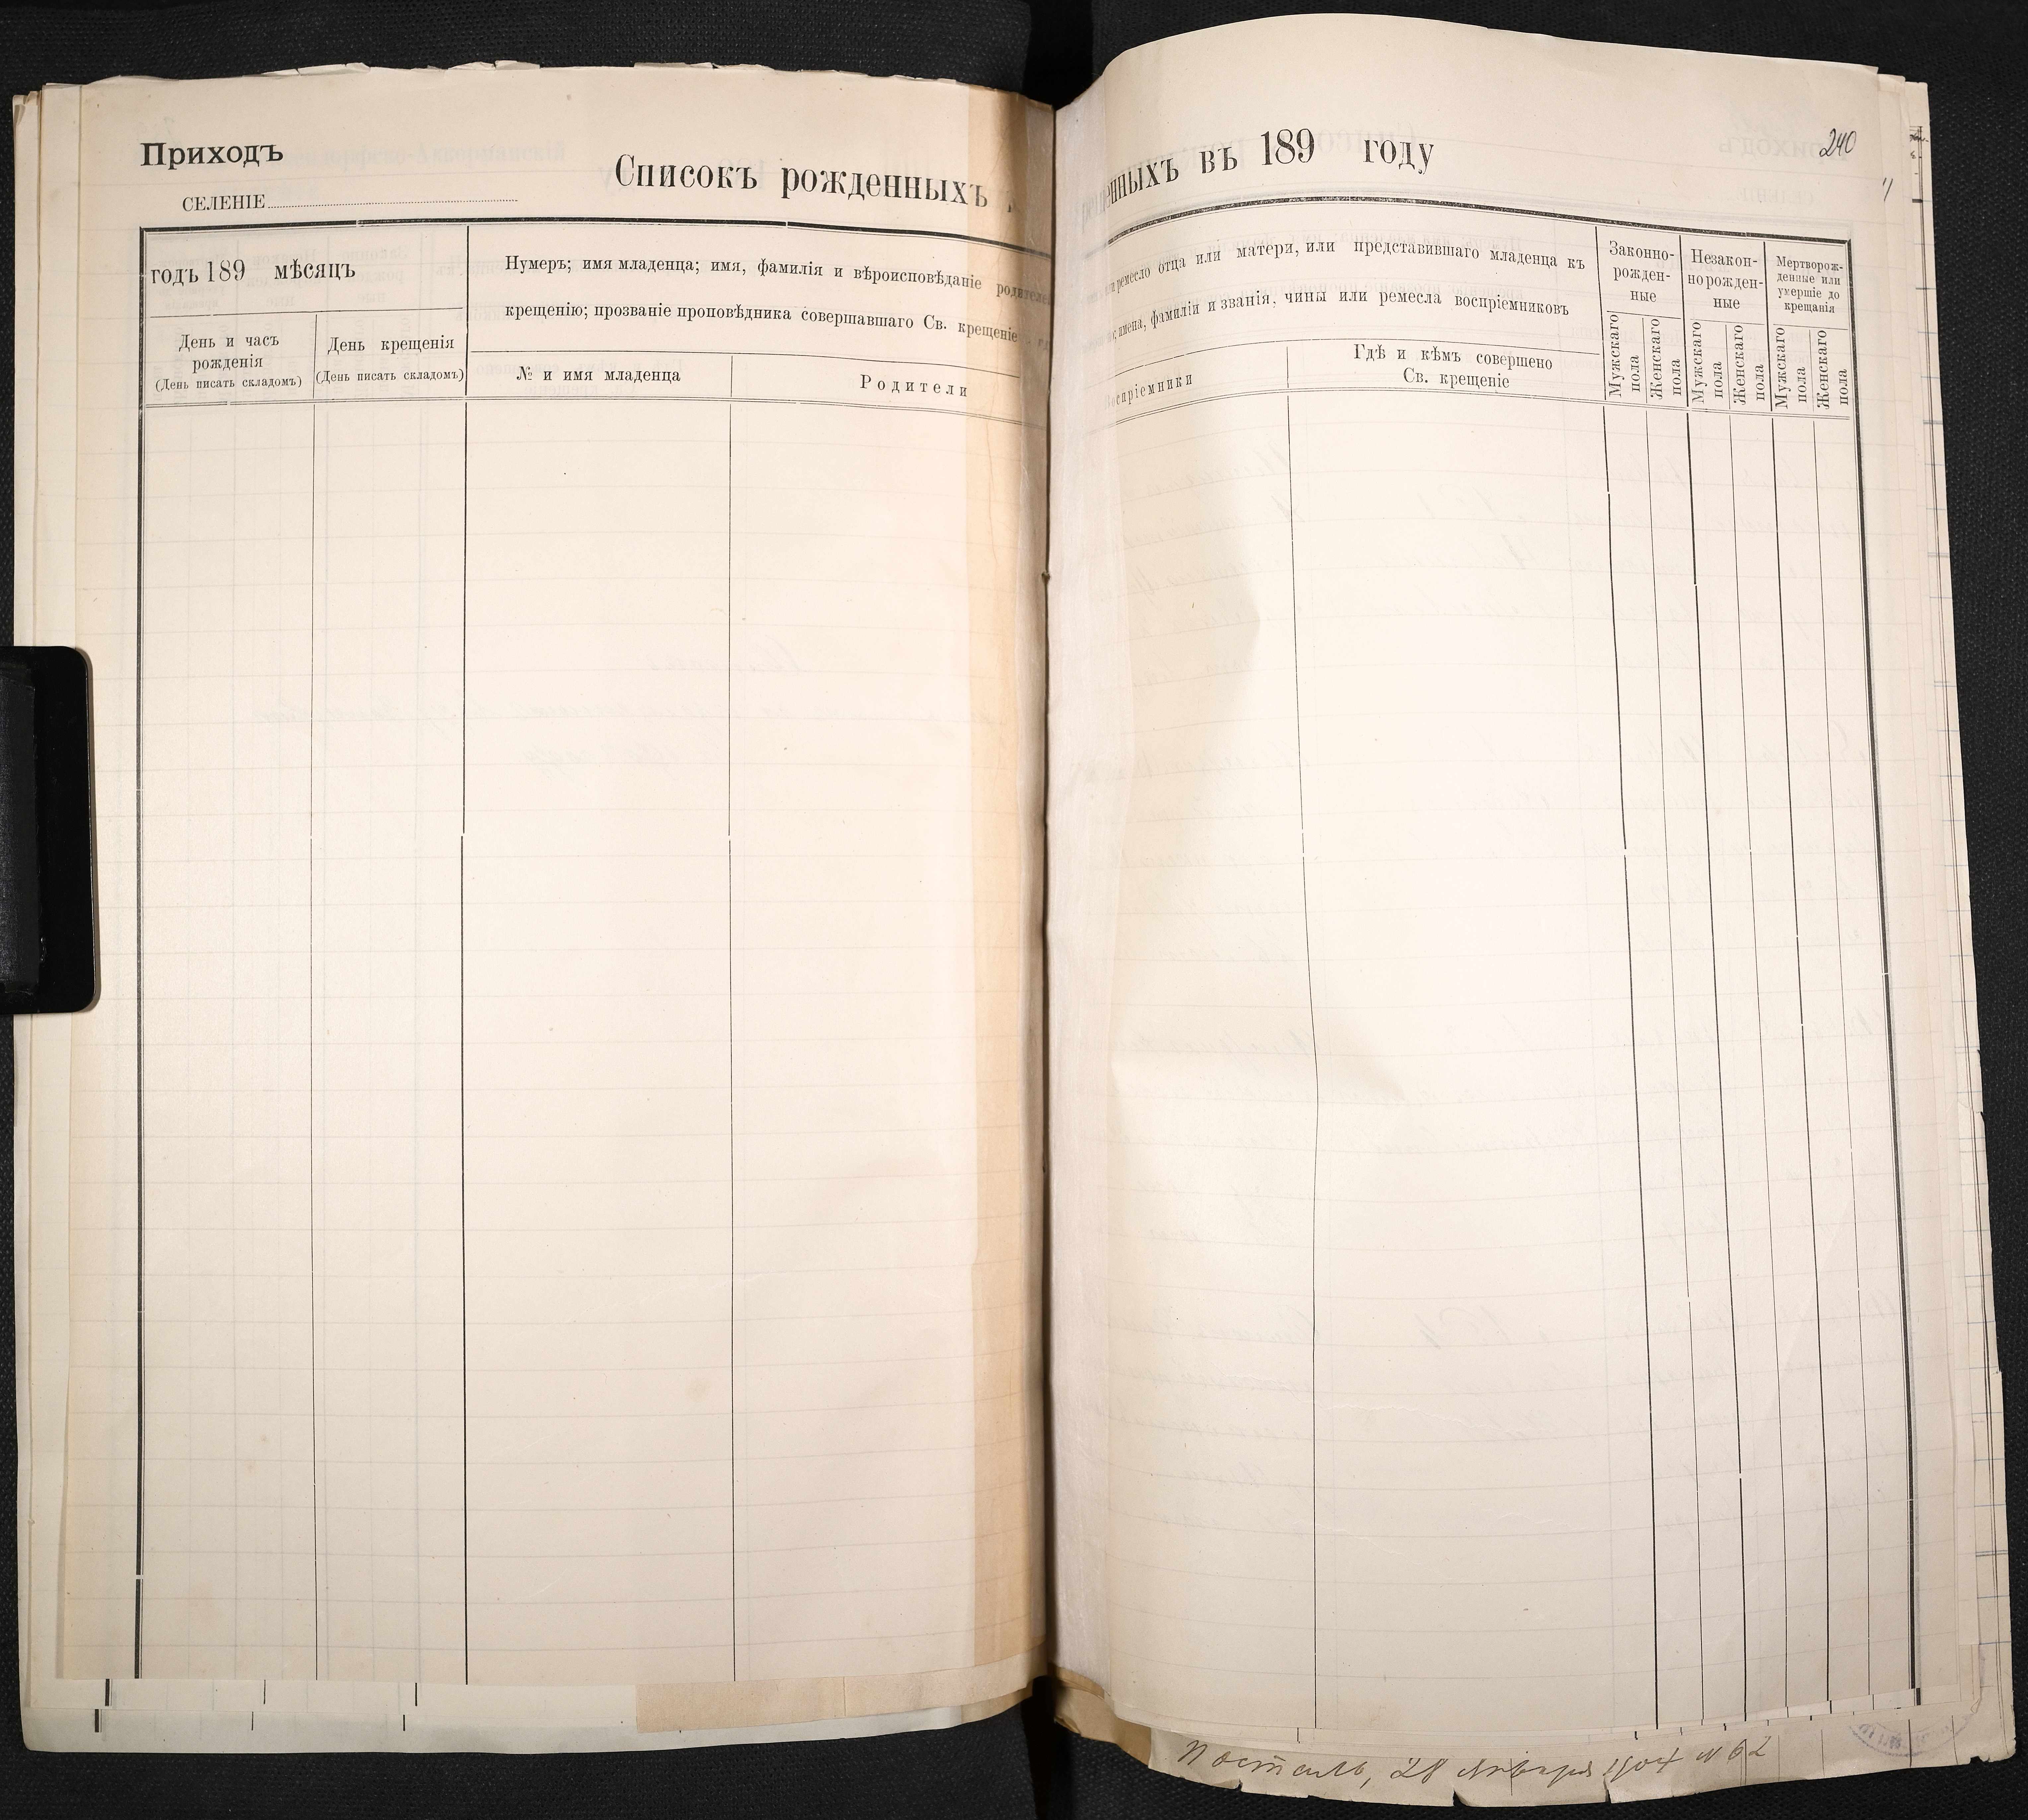 Приходъ
СЕЛЕНІЕ
Списокъ рожденныхъ
годъ 189 мѣсяцъ
День и часъ
рожденія
(День писать складомъ)
День крещенія
(День писать складомъ)
Нумеръ; имя младенца; имя, фамилія и вѣроисповѣданіе родителе
крещенію; прозваніе проповѣдника совершавшаго Св. крещеніе
№ и имя младенца
Родители
240
въ 189 году
ремесло отца или матери, или представившаго младенца къ
имена, фамиліи и званія, чины или ремесла воспріемниковъ
спріемники
Гдѣ и кѣмъ совершено
Св. крещеніе
Законно-
рожден-
ные
Мужскаго
пола
Женскаго
пола
Незакон-
норожден-
ные
Мужскаго
пола
Женскаго
пола
Мертворож-
денные или
умершіе до
крещанія
Мужскаго
пола
Женскаго
пола
28 Января 1904 № 62